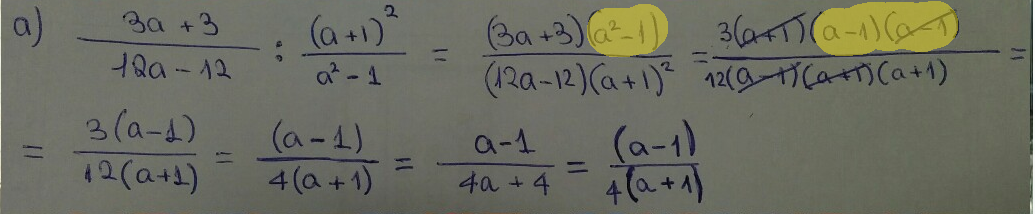 a) (3a + 3)/(12a - 12) : (a+1)²/(a² - 1) = (3a+3)(a²-1)/((12a-12)(a+1)²) = 3(a+1)(a-1)(a-1)/(12(a-1)(a+1)(a+1)) =
= 3(a-1)/(12(a+1)) = (a-1)/(4(a+1)) = (a-1)/(4a + 4) = (a-1)/(4(a+1))